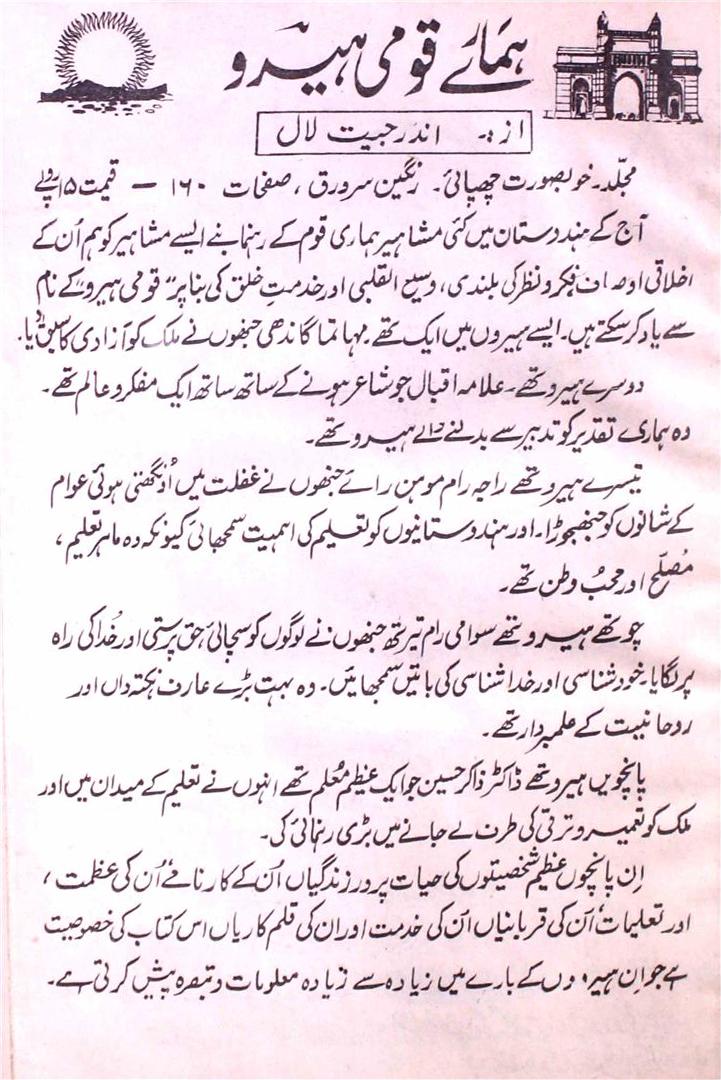 ہمارے قومی ہیرو
از:۔ اندر جیت لال
مجلّد۔ خوبصورت چھپائی۔ رنگین سرورق، صفحات ۱۶۰ — قیمت ۱۵ روپے
آج کے ہندوستان میں کئی مشاہیر ہماری قوم کے رہنما بنے ایسے مشاہیر کو ہم اُن کے
اخلاقی اوصاف فکر و نظر کی بلندی، وسیع القلبی اور خدمتِ خلق کی بنا پر "قومی ہیرو" کے نام
سے یاد کر سکتے ہیں۔ ایسے ہیروں میں ایک تھے مہاتما گاندھی جنھوں نے ملک کو آزادی کا سبق دیا۔
دوسرے ہیرو تھے۔ علامہ اقبال جو شاعر ہونے کے ساتھ ساتھ ایک مفکر و عالم تھے۔
وہ ہماری تقدیر کو تدبیر سے بدلنے والے ہیرو تھے۔
تیسرے ہیرو تھے راجہ رام موہن رائے جنھوں نے غفلت میں اُونگھتی ہوئی عوام
کے شانوں کو جنھجوڑا۔ اور ہندوستانیوں کو تعلیم کی اہمیت سمجھائی کیونکہ وہ ماہر تعلیم،
مُصلح اور محبُ وطن تھے۔
چوتھے ہیرو تھے سوامی رام تیرتھ جنھوں نے لوگوں کو سچائی حق پرستی اور خُدا کی راہ
پر لگایا۔ خود شناسی اور خدا شناسی کی باتیں سمجھائیں۔ وہ بہت بڑے عارف نکتہ داں اور
روحانیت کے علمبردار تھے۔
پانچویں ہیرو تھے ڈاکٹر ذاکر حسین جو ایک عظیم مُعلم تھے انہوں نے تعلیم کے میدان میں اور
ملک کو تعمیر و ترقی کی طرف لے جانے میں بڑی رہنمائی کی۔
اِن پانچوں عظیم شخصیتوں کی حیات پرور زندگیاں اُن کے کارنامے، اُن کی عظمت،
اور تعلیمات، اُن کی قربانیاں اُن کی خدمت اور ان کی قلم کاریاں اس کتاب کی خصوصیت
ہے جو اِن ہیروں کے بارے میں زیادہ سے زیادہ معلومات و تبصرہ پیش کرتی ہے۔